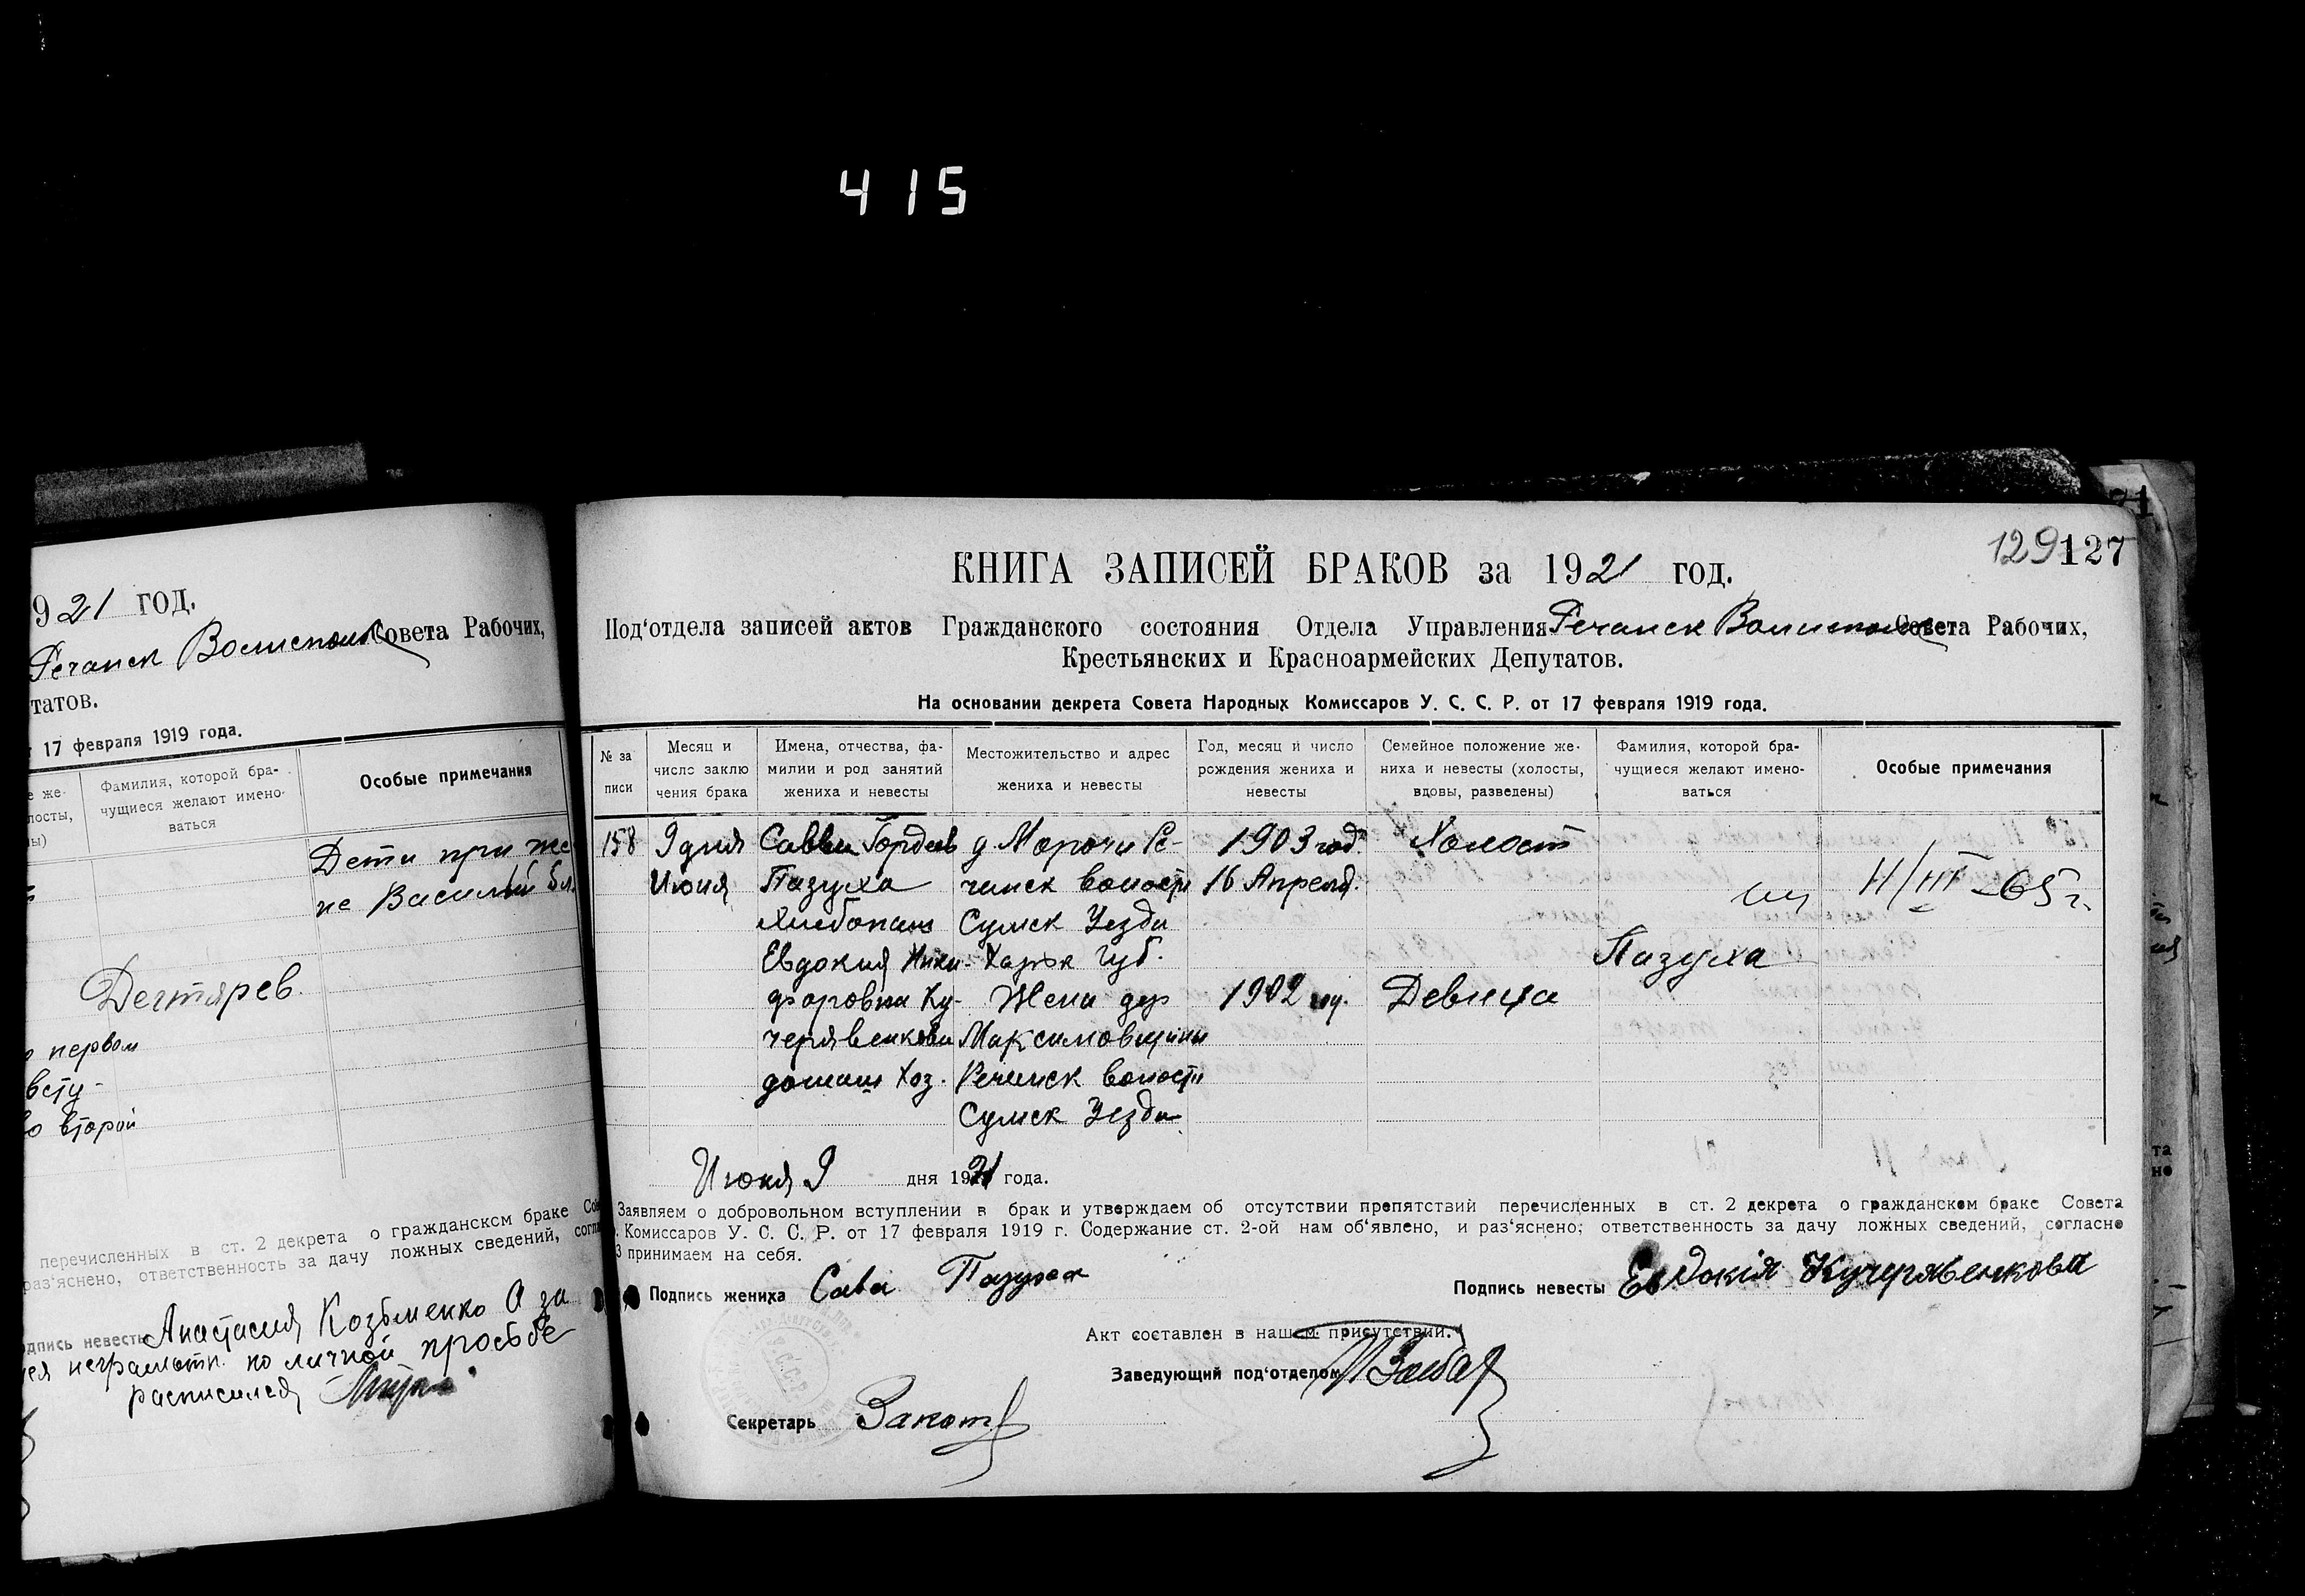 415
921 год.
Речанск Волисполк Совета Рабочих,
татов.
17 февраля 1919 года.
е же-
лосты,
ны)
Фамилия, которой бра-
чущиеся желают имено-
ваться
Особые примечания
Дети при же
не Василий
Дегтярев
первом
всту-
о второй
перечисленных в ст. 2 декрета о гражданском браке Сов
раз'яснено, ответственность за дачу ложных сведений, согла
одпись невесты Анастасия Козьменко А за
нея неграмотн. по личной просьбе
расписался
71
129 127
КНИГА ЗАПИСЕЙ БРАКОВ за 1921 год.
Под'отдела записей актов Гражданского состояния Отдела Управления Речанск Волисполк Совета Рабочих,
Крестьянских и Красноармейских Депутатов.
На основании декрета Совета Народных Комиссаров У. С. С. Р. от 17 февраля 1919 года.
№ за
писи
Месяц и
число заклю
чения брака
Имена, отчества, фа-
милии и род занятий
жениха и невесты
Местожительство и адрес
жениха и невесты
Год, месяц и число
рождения жениха и
невесты
Семейное положение же-
ниха и невесты (холосты,
вдовы, разведены)
Фамилия, которой бра-
чущиеся желают имено-
ваться
Особые примечания
158
9 дня
Июня
Савва Гордеев
Пазуха
хлебопаш
Евдокия Ники-
форовна Ку-
черявенкова
домаш хоз.
д Морочи Ре-
чанск волости
Сумск Уезда
Харьк Губ.
Жена дер
Максимовщины
Речанск волости
Сумск Уезда
1903 год.
16 Апреля.
1902 год.
Холост
Девица
Пазуха
II/III-65 г.
Июня 9 дня 1921 года.
Заявляем о добровольном вступлении в брак и утверждаем об отсутствии препятствий перечисленных в ст. 2 декрета о гражданском браке Совета
. Комиссаров У. С. С. Р. от 17 февраля 1919 г. Содержание ст. 2-ой нам об'явлено, и раз'яснено; ответственность за дачу ложных сведений, согласно
3 принимаем на себя.
Подпись жениха Сава Пазуха
Подпись невесты Евдокія Кучерявенкова
Акт составлен в нашем присутствии.
Заведующий под'отделом
Секретарь